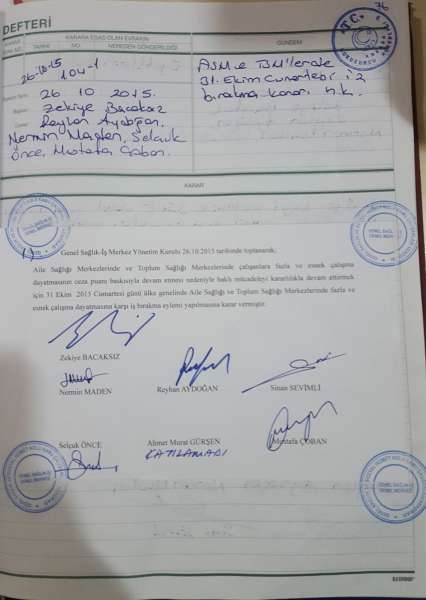 76
DEFTERİ
KARARA ESAS OLAN EVRAKIN
TARİHİ NO. NEREDEN GÖNDERİLDİĞİ
GÜNDEM
T.C.
26.10.15 104-1
26 10 2015.
Zekiye Bacaksız
Reyhan Aydoğan,
Nermin Maden, Selçuk
Önce, Mustafa Çoban.
ASM ve TSM'lerde
31. Ekim Cumartesi iş
bırakma kararı h.k.
KARAR
1) Genel Sağlık-İş Merkez Yönetim Kurulu 26.10.2015 tarihinde toplanarak;
Aile Sağlığı Merkezlerinde ve Toplum Sağlığı Merkezlerinde çalışanlara fazla ve esnek çalışma
dayatmasının ceza puanı baskısıyla devam etmesi nedeniyle haklı mücadeleyi kararlılıkla devam ettirmek
için 31 Ekim 2015 Cumartesi günü ülke genelinde Aile Sağlığı ve Toplum Sağlığı Merkezlerinde fazla ve
esnek çalışma dayatmasına karşı iş bırakma eylemi yapılmasına karar vermiştir.
Zekiye BACAKSIZ
Nermin MADEN Reyhan AYDOĞAN Sinan SEVİMLİ
Selçuk ÖNCE Ahmet Murat GÜRŞEN Mustafa ÇOBAN
KATILAMADI